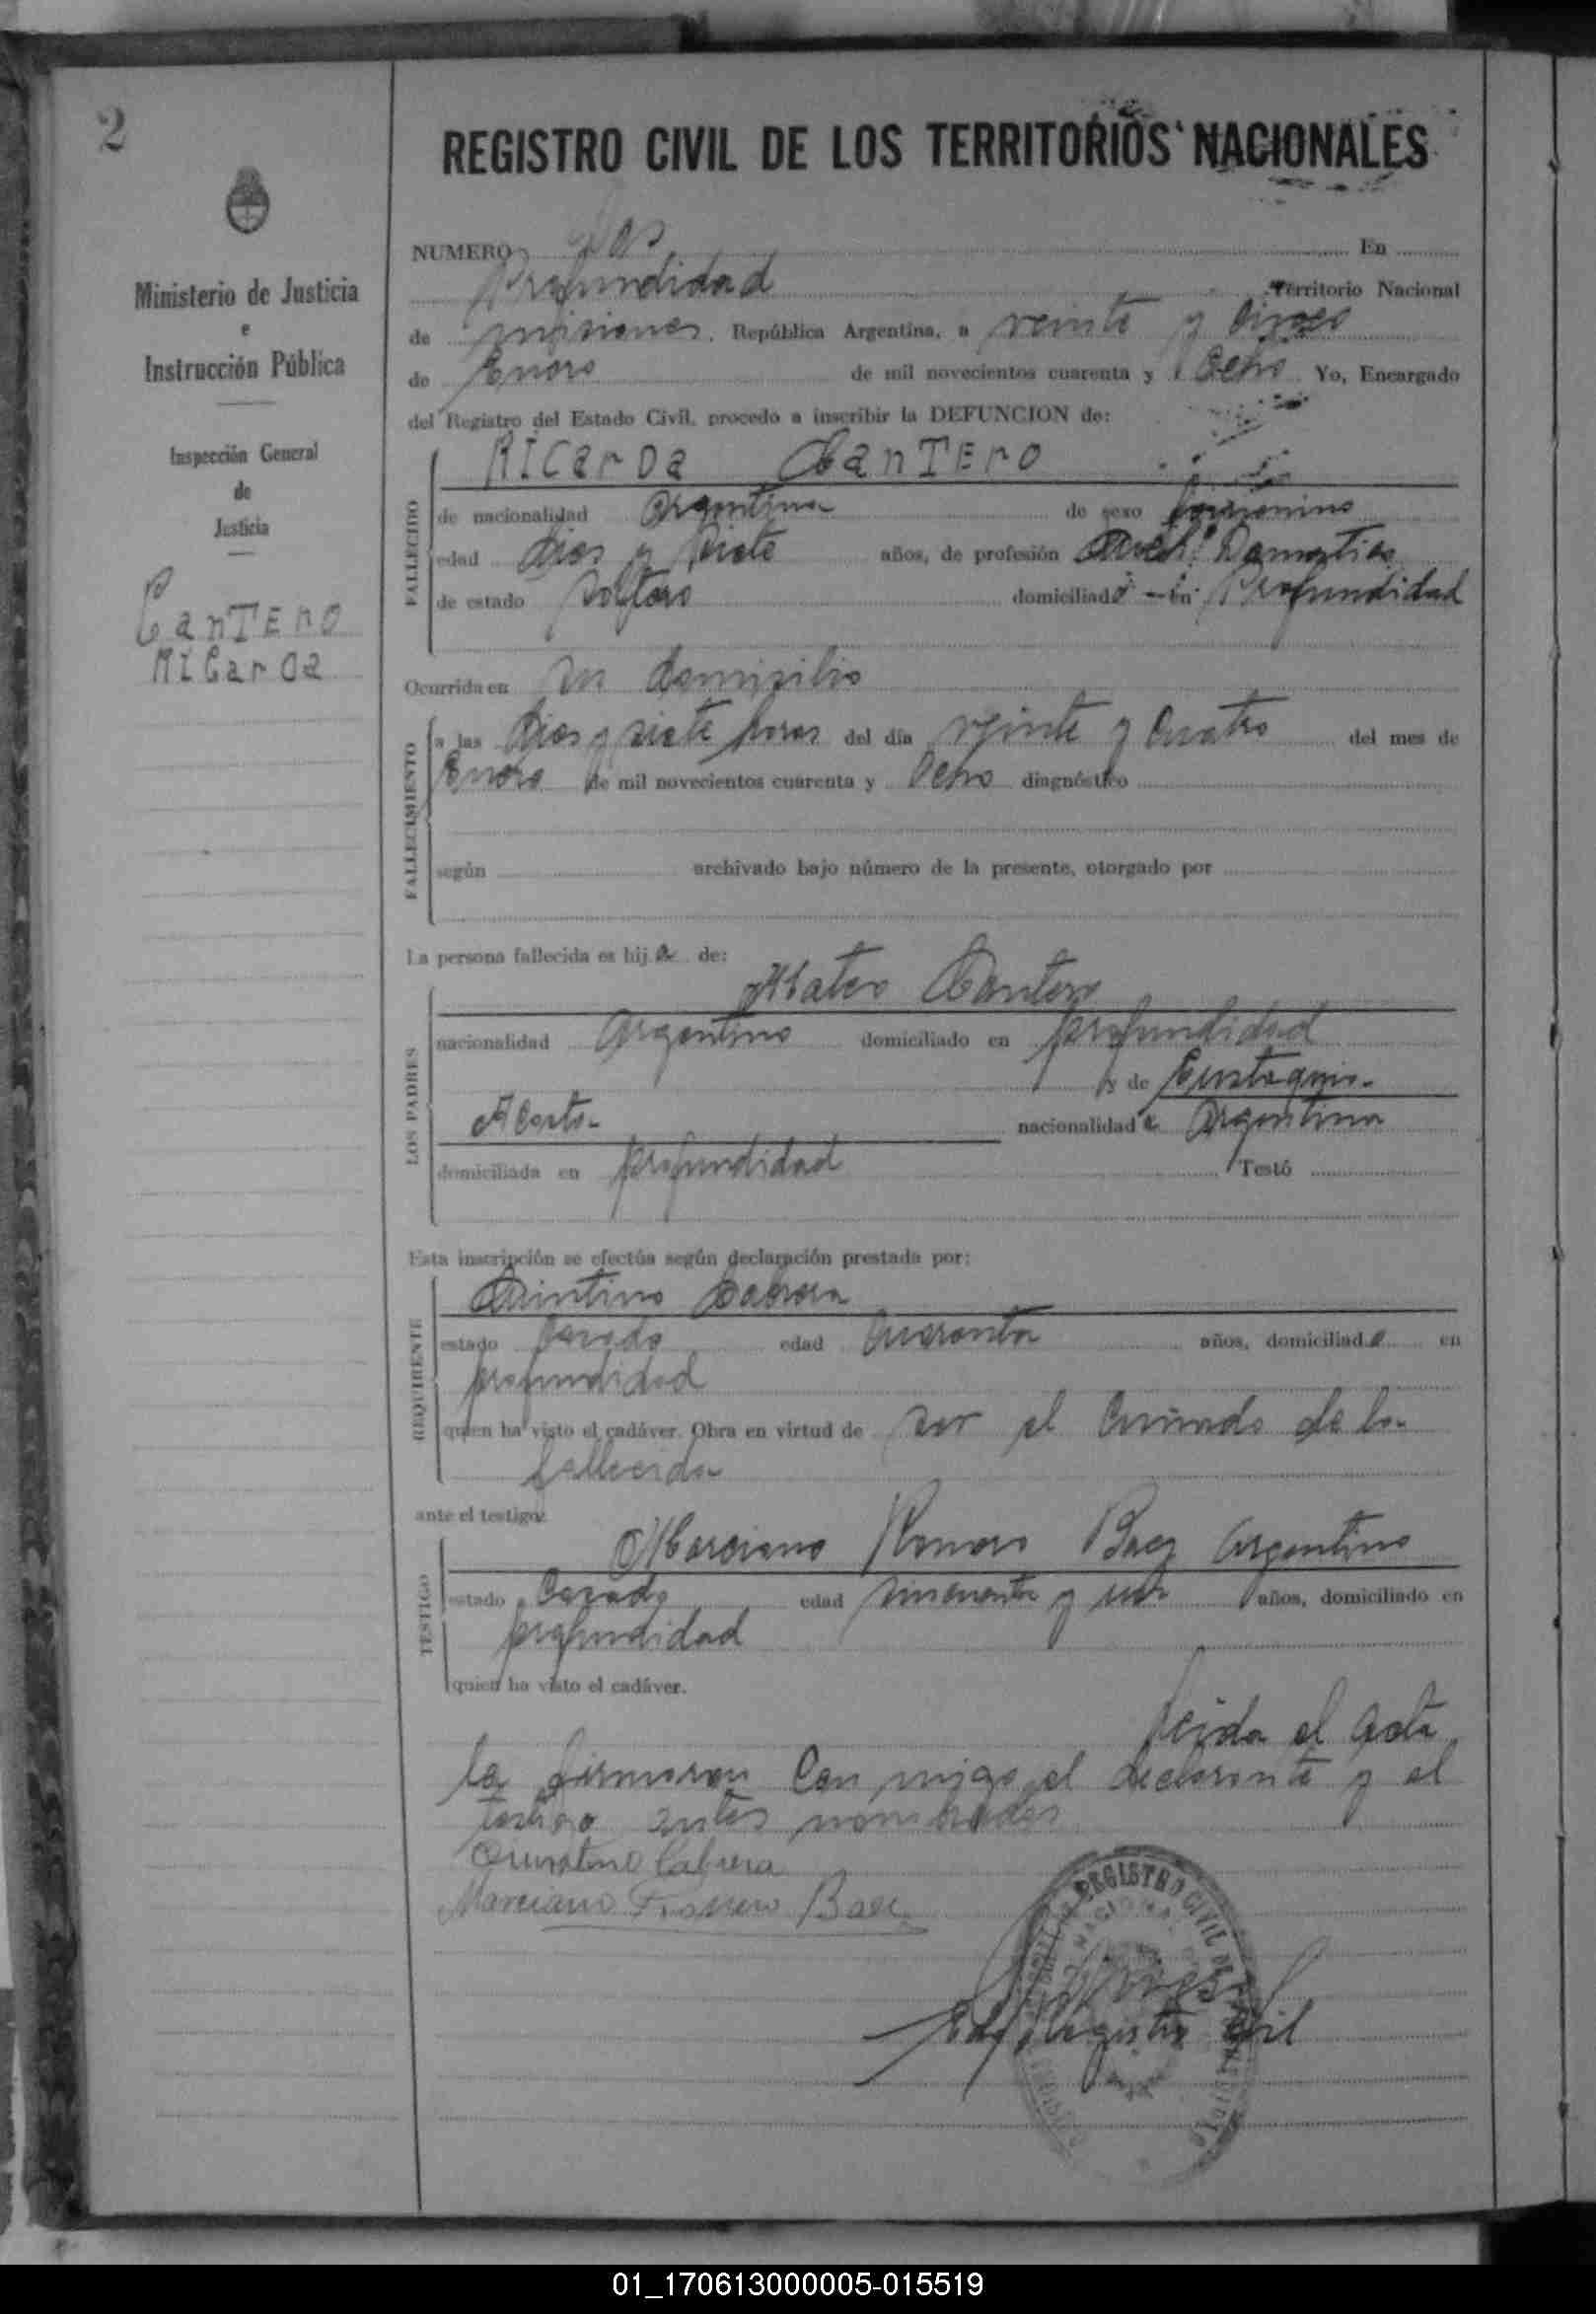 2
REGISTRO CIVIL DE LOS TERRITORIOS NACIONALES
Ministerio de Justicia
e
Instrucción Pública
Inspección General
de
Justicia
CanTEro
RiCarda
NUMERO Dos En
Profundidad Territorio Nacional
de misiones. República Argentina, a veinte y Cinco
de Enero de mil novecientos cuarenta y Ocho Yo, Encargado
del Registro del Estado Civil, procedo a inscribir la DEFUNCION de:
FALLECIDO
RiCarDa CanTEro
de nacionalidad Argentina de sexo femenino
edad dies y siete años, de profesión Domestica
de estado Soltera domiciliada en Profundidad
Ocurrida en su domisilio
FALLECIMIENTO
a las dies y siete horas del día veinte y Cuatro del mes de
Enero de mil novecientos cuarenta y Ocho diagnóstico
según archivado bajo número de la presente, otorgado por
La persona fallecida es hija de:
LOS PADRES
Mateo Cantero
nacionalidad Argentino domiciliado en profundidad
y de Eustaquia
Acosta nacionalidad Argentina
domiciliada en profundidad Testó
Esta inscripción se efectúa según declaración prestada por:
REQUIRENTE
Quintino Cabrera
estado Casado edad Cuarenta años, domiciliado en
profundidad
quien ha visto el cadáver. Obra en virtud de ser el Cuñado de la
fallecida
ante el testigo:
TESTIGO
Marciano Romero Baez Argentino
estado Casado edad sincuenta y un años, domiciliado en
profundidad
quien ha visto el cadáver.
Leida el acta
la firmaron Con migo el declarante y el
testigo antes nombrados
Cabrera
Marciano Baez
REGISTRO CIVIL DE
Registro Civil
01_170613000005-015519